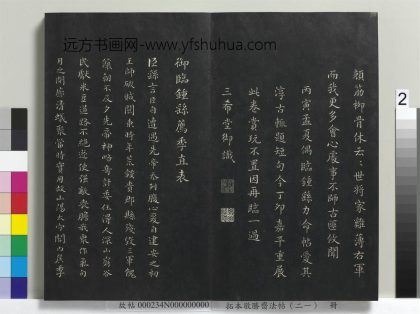 远方书画网-www.yfshuhua.com
顏筋柳骨休云云世將家雞薄右軍
而我更多會心處事不師古匪攸聞
丙寅孟夏偶臨鍾繇力命帖愛其
淳古輒題短句今丁卯嘉平重展
此卷賞玩不置因再臨一過
三希堂御識
御臨鍾繇薦季直表
臣繇言臣自遭遇先帝忝列腹心爰自建安之初
王師破賊關東時年荒穀貴郡縣殘毀三軍餽
饟朝不及夕先帝神略奇計委任得人深山窮谷
民獻米豆道路不絕遂使強敵喪膽我眾作氣旬
月之間廓清蟻聚當時實用故山陽太守關內侯季
故帖000234N000000000
拓本敬勝齋法帖(二一) 冊